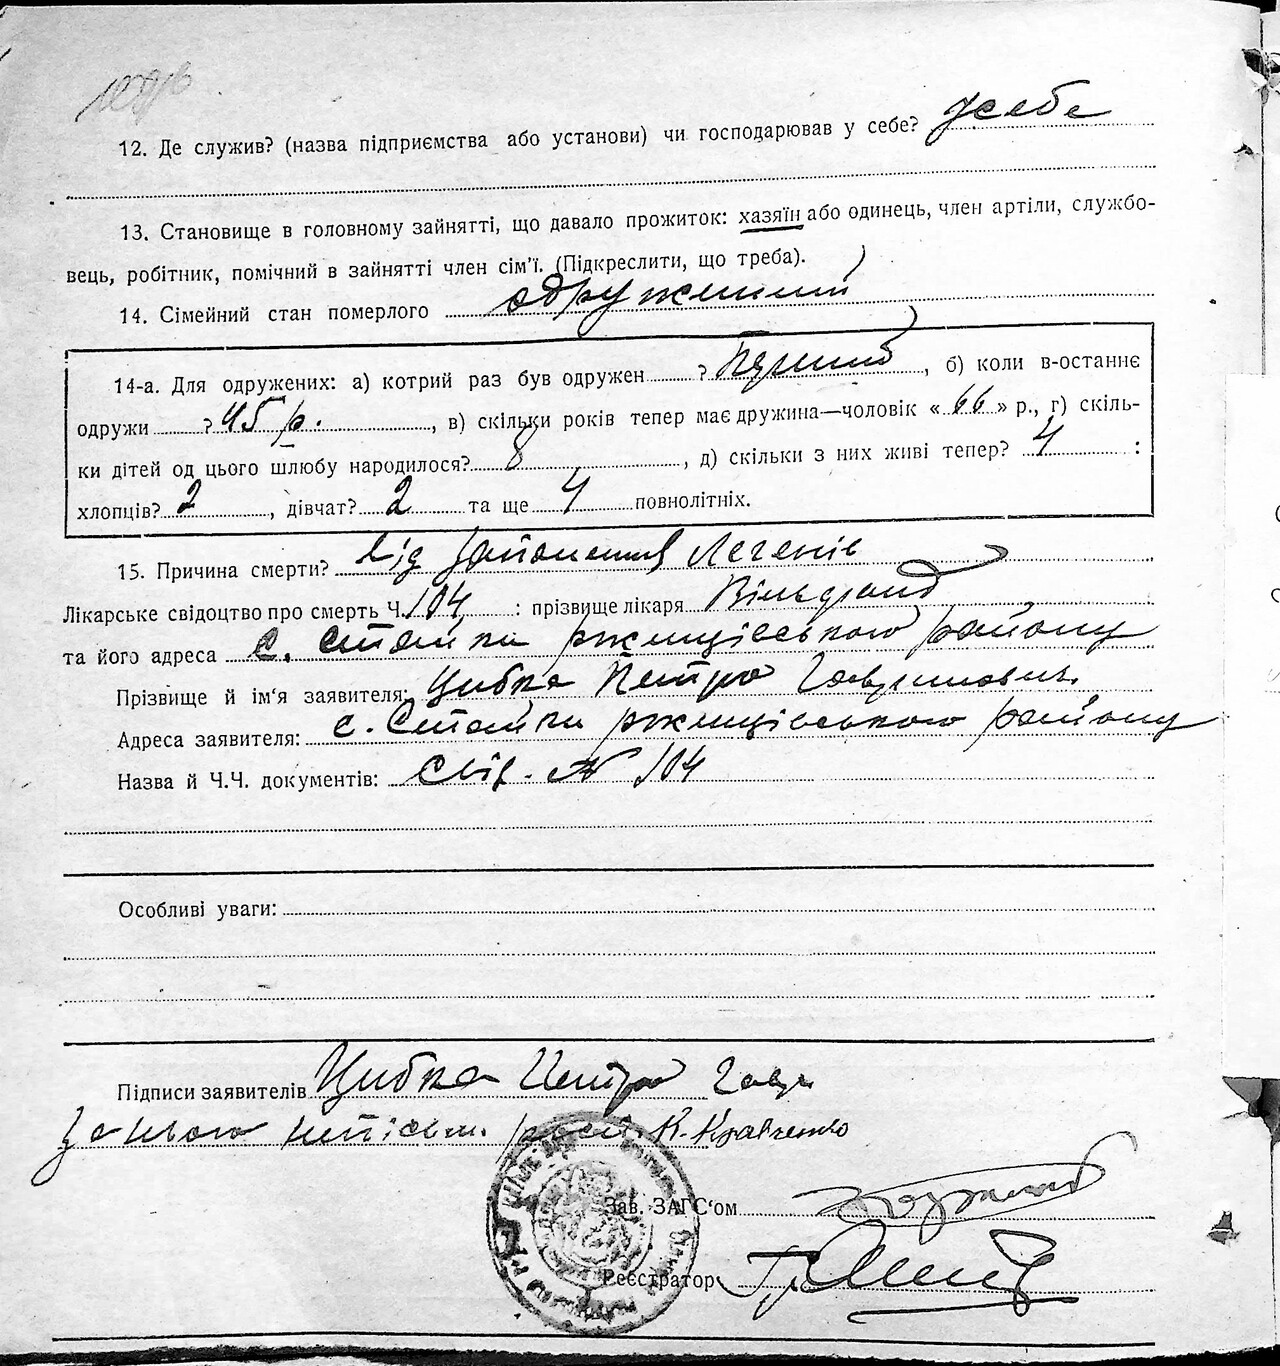 12. Де служив? (назва підприємства або установи) чи господарював у себе? у себе
13. Становище в головному зайнятті, що давало прожиток: хазяїн або одинець, член артіли, службо-
вець, робітник, помічний в зайнятті член сім'ї. (Підкреслити, що треба).
14. Сімейний стан померлого одружений
14-а. Для одружених: а) котрий раз був одружен ? Перший, б) коли в-останнє
одружи ? 45 р., в) скільки років тепер має дружина—чоловік « 66 » р., г) скіль-
ки дітей од цього шлюбу народилося? 8, д) скільки з них живі тепер? 4 :
хлопців? 2, дівчат? 2 та ще 4 повнолітніх.
15. Причина смерти? Від запалення Легенів
Лікарське свідоцтво про смерть Ч. 104 : прізвище лікаря
та його адреса с. Стайки ржищівського району
Прізвище й ім'я заявителя: Цибка Петро Гаврилович
Адреса заявителя: с. Стайки ржищівського району
Назва й Ч.Ч. документів: Свід. № 104
Особливі уваги:
Підписи заявителів Цибка Петро Гавр
За нього неписьм. розп. К. Кравченко
Зав. ЗАГС'ом
Реєстратор